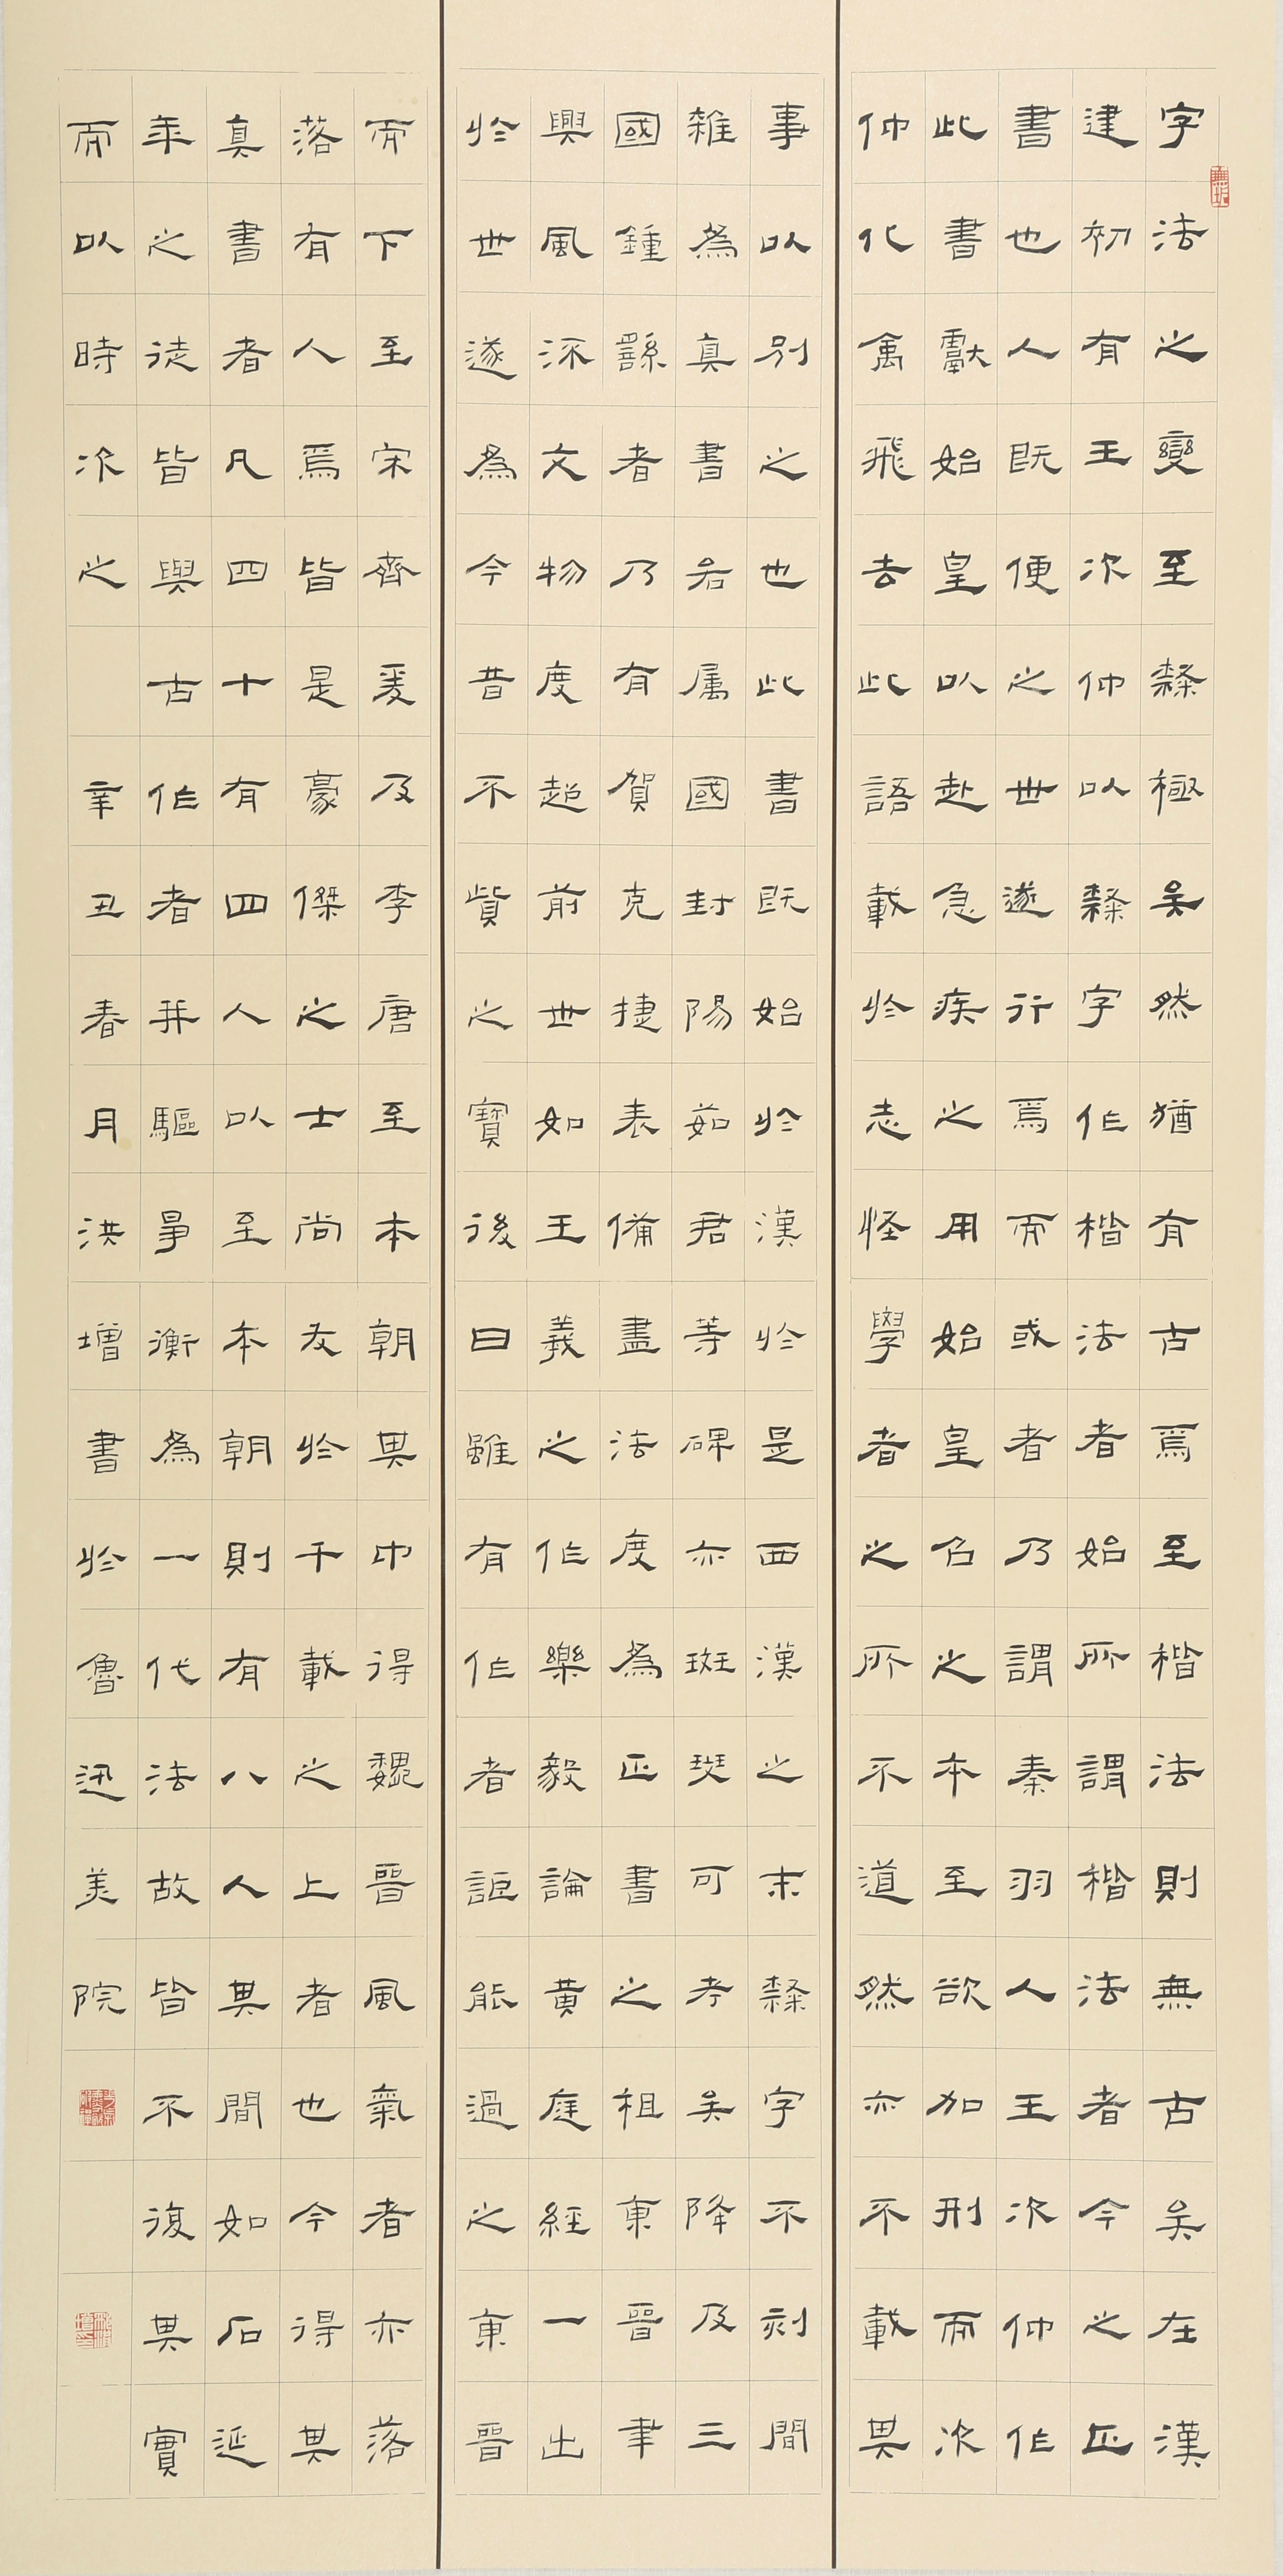 字法之變至隸極矣然猶有古焉至楷法則無古矣在漢
建初有王次仲以隸字作楷法者始所謂楷法者今之正
書也人既便之世遂行焉而或者乃謂秦羽人王次仲作
此書獻始皇以赴急疾之用始皇召之本至欲加刑而次
仲化禽飛去此語載於志怪學者之所不道然亦不載其
事以別之也此書既始於漢於是西漢之末隸字不刻間
雜為真書若属國封陽茹君等碑亦斑斑可考矣降及三
國鍾繇者乃有賀克捷表備盡法度為正書之祖東晉聿
興風流文物度超前世如王羲之作樂毅論黄庭經一出
於世遂為今昔不貲之寶後曰雖有作者詎能過之東晉
而下至宋齊爰及李唐至本朝其中得魏晉風氣者亦落
落有人焉皆是豪傑之士尚友於千載之上者也今得其
真書者凡四十有四人以至本朝則有八人其間如石延
年之徒皆與古作者并驅爭衡為一代法故皆不復其實
而以時次之 辛丑春月洪增書於魯迅美院